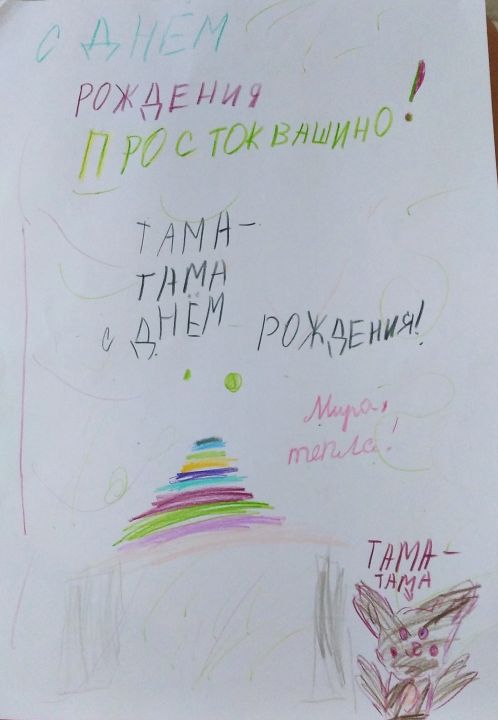 С ДНЁМ
РОЖДЕНИЯ
ПРОСТОКВАШИНО!
ТАМА-
ТАМА
С ДНЁМ РОЖДЕНИЯ!
Мира,
тепла!
ТАМА-
ТАМА